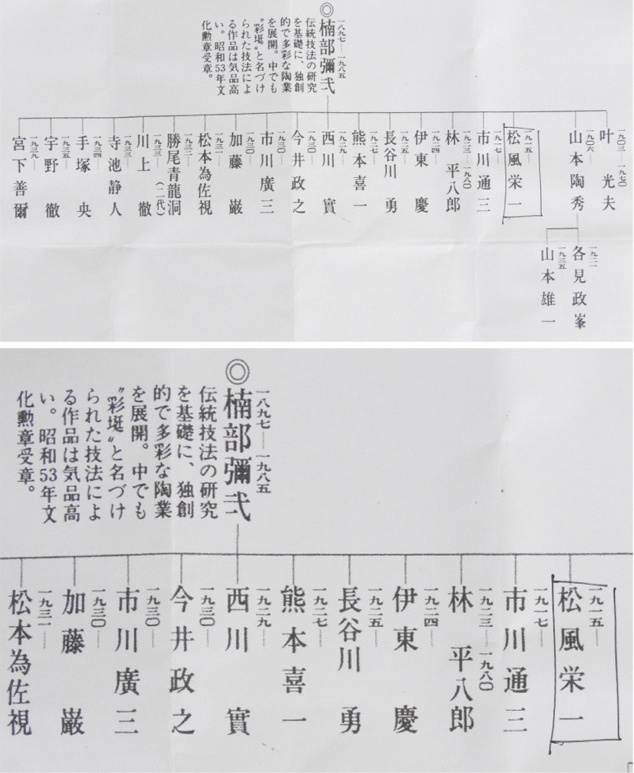 ◎
一八九七―一九八五
楠部彌弌
伝統技法の研究
を基礎に、独創
的で多彩な陶業
を展開。中でも
"彩埏"と名づけ
られた技法によ
る作品は気品高
い。昭和53年文
化勲章受章。
一九〇三―一九七〇
叶 光夫
一九〇六―
山本陶秀
一九二一―
各見政峯
一九三五―
山本雄一
一九一五―
松風栄一
一九一七―
市川通三
一九二三―一九八〇
林 平八郎
一九二四―
伊東 慶
一九二五―
長谷川 勇
一九二七―
熊本喜一
一九二九―
西川 實
一九三〇―
今井政之
一九三〇―
市川廣三
一九三〇―
加藤 巌
一九三一―
松本為佐視
一九三三―(二代)
勝尾青龍洞
一九三三―
川上 徹
一九三三―
寺池静人
一九三四―
手塚 央
一九三五―
宇野 徹
一九三九―
宮下善爾
◎
一八九七―一九八五
楠部彌弌
伝統技法の研究
を基礎に、独創
的で多彩な陶業
を展開。中でも
"彩埏"と名づけ
られた技法によ
る作品は気品高
い。昭和53年文
化勲章受章。
一九一五―
松風栄一
一九一七―
市川通三
一九二三―一九八〇
林 平八郎
一九二四―
伊東 慶
一九二五―
長谷川 勇
一九二七―
熊本喜一
一九二九―
西川 實
一九三〇―
今井政之
一九三〇―
市川廣三
一九三〇―
加藤 巌
一九三一―
松本為佐視